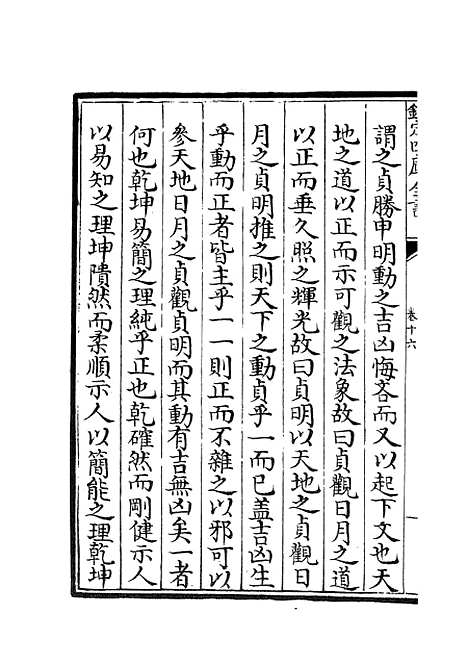 欽定四庫全書
卷十六
謂之貞勝申明動之吉凶悔吝而又以起下文也天
地之道以正而示可觀之法象故曰貞觀日月之道
以正而垂久照之輝光故曰貞明以天地之貞觀日
月之貞明推之則天下之動貞乎一而已蓋吉凶生
乎動而正者皆主乎一一則正而不雜之以邪可以
參天地日月之貞觀貞明而其動有吉無凶矣一者
何也乾坤易簡之理純乎正也乾確然而剛健示人
以易知之理坤隤然而柔順示人以簡能之理乾坤